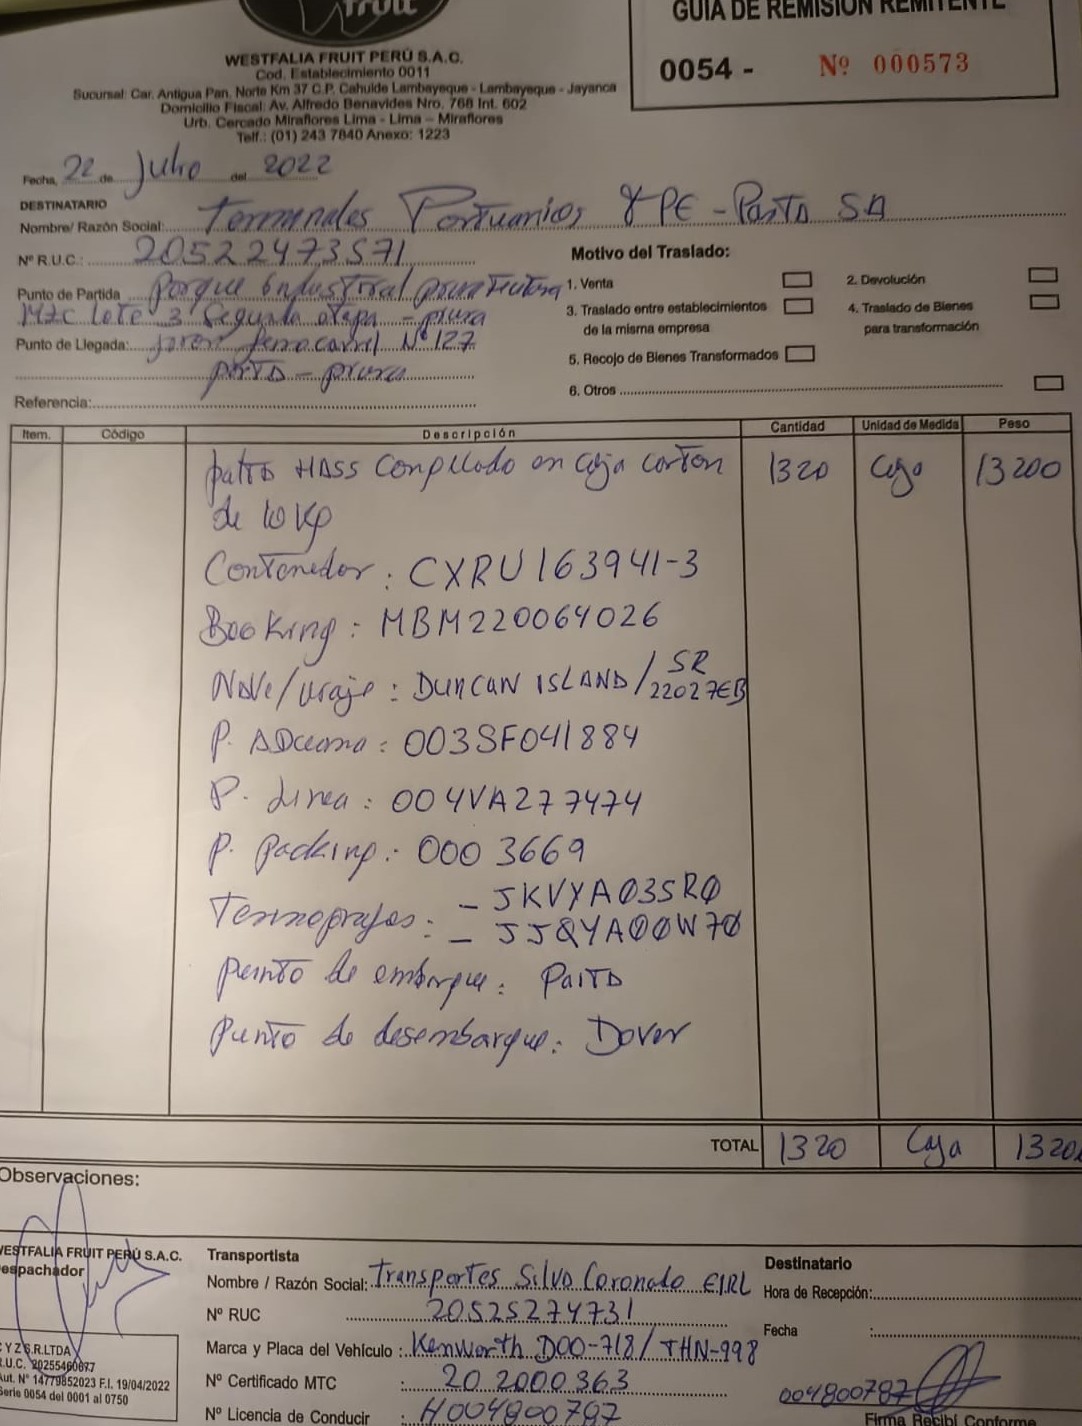 fruit
WESTFALIA FRUIT PERÚ S.A.C.
Cod. Establecimiento 0011
Sucursal: Car. Antigua Pan. Norte Km 37 C.P. Cahuide Lambayeque - Lambayeque - Jayanca
Domicilio Fiscal: Av. Alfredo Benavides Nro. 768 Int. 602
Urb. Cercado Miraflores Lima - Lima - Miraflores
Telf.: (01) 243 7840 Anexo: 1223
GUIA DE REMISIÓN REMITENTE
0054 - Nº 000573
Fecha, 22 de Julio del 2022
DESTINATARIO
Nombre/ Razón Social: Terminales Portuarios PE - Paita SA
Nº R.U.C.: 20522473571
Punto de Partida Parque Industrial
Mzc Lote 3 Segunda etapa - piura
Punto de Llegada: ferrocarril Nº 127
paita - piura
Referencia:
Motivo del Traslado:
1. Venta
2. Devolución
3. Traslado entre establecimientos
de la misma empresa
4. Traslado de Bienes
para transformación
5. Recojo de Bienes Transformados
6. Otros
Item. Código Descripción Cantidad Unidad de Medida Peso
palta HASS en caja carton 1320 caja 13200
de 10 Kg
Contenedor : CXRU 163941-3
Booking : MBM220064026
Nave/viaje : DUNCAN ISLAND / SR
22027EB
P. ADuana : 003SF041884
P. Linea : 004VA277474
P. packing : 000 3669
Termografos : - JKVYA03SR0
- JJQYA00W70
punto de embarque : Paita
punto de desembarque : Dover
TOTAL 1320 Caja 1320
Observaciones:
WESTFALIA FRUIT PERÚ S.A.C.
espachador
Transportista
Nombre / Razón Social: Transportes Silva Coronado EIRL
Nº RUC 20525274731
Marca y Placa del Vehículo : Kenworth D00-718/ THN-998
Nº Certificado MTC : 20 2000363
Nº Licencia de Conducir : H004800787
Destinatario
Hora de Recepción:
Fecha :
004800787
Firma Recibí Conforme
Y Z S.R.LTDA
R.U.C. 20255460677
Aut. Nº 14779852023 F.I. 19/04/2022
Serie 0054 del 0001 al 0750